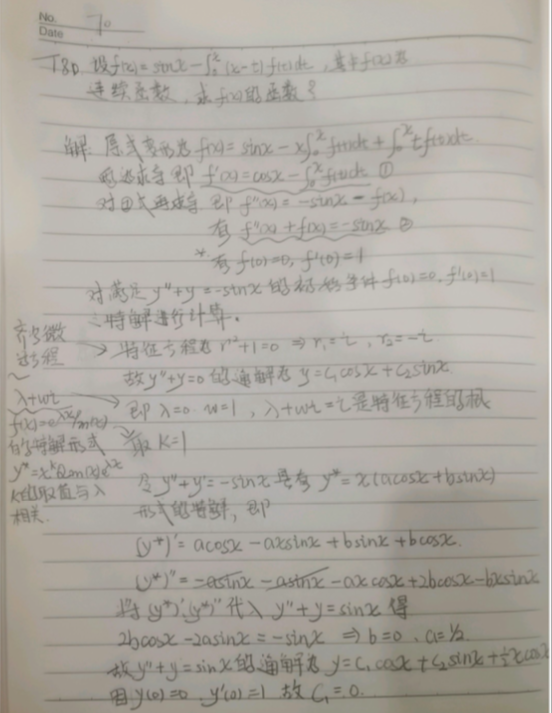 No. 70
Date
T80. 设f(x)=sinx-∫₀ˣ(x-t)f(t)dt,其中f(x)为
连续函数,求f(x)的函数?
解: 原式变形为f(x)=sinx-x∫₀ˣf(t)dt+∫₀ˣtf(t)dt.
求导即 f'(x)=cosx-∫₀ˣf(t)dt ①
对①式再求导 即f''(x)=-sinx-f(x),
有 f''(x)+f(x)=-sinx ②
* 有f(0)=0, f'(0)=1
对满足y''+y=-sinx的初始条件f(0)=0, f'(0)=1
之特解进行计算.
齐次微
过程
→ 特征方程为r²+1=0 ⇒ r₁=i, r₂=-i
故y''+y=0的通解为y=C₁cosx+C₂sinx.
λ+wi
→ 即λ=0. w=1, λ+wi=i是特征方程的根
的特解形式
取K=1
K的取值与λ
相关.
令y''+y=-sinx具有y*=x(acosx+bsinx)
形式的特解,即
(y*)'=acosx-axsinx+bsinx+bxcosx.
(y*)''=-asinx-asinx-axcosx+2bcosx-bxsinx
将(y*)',(y*)''代入y''+y=sinx得
2bcosx-2asinx=-sinx ⇒ b=0. a=1/2
故y''+y=sinx的通解为y=C₁cosx+C₂sinx+½xcosx
由y(0)=0. y'(0)=1 故C₁=0.